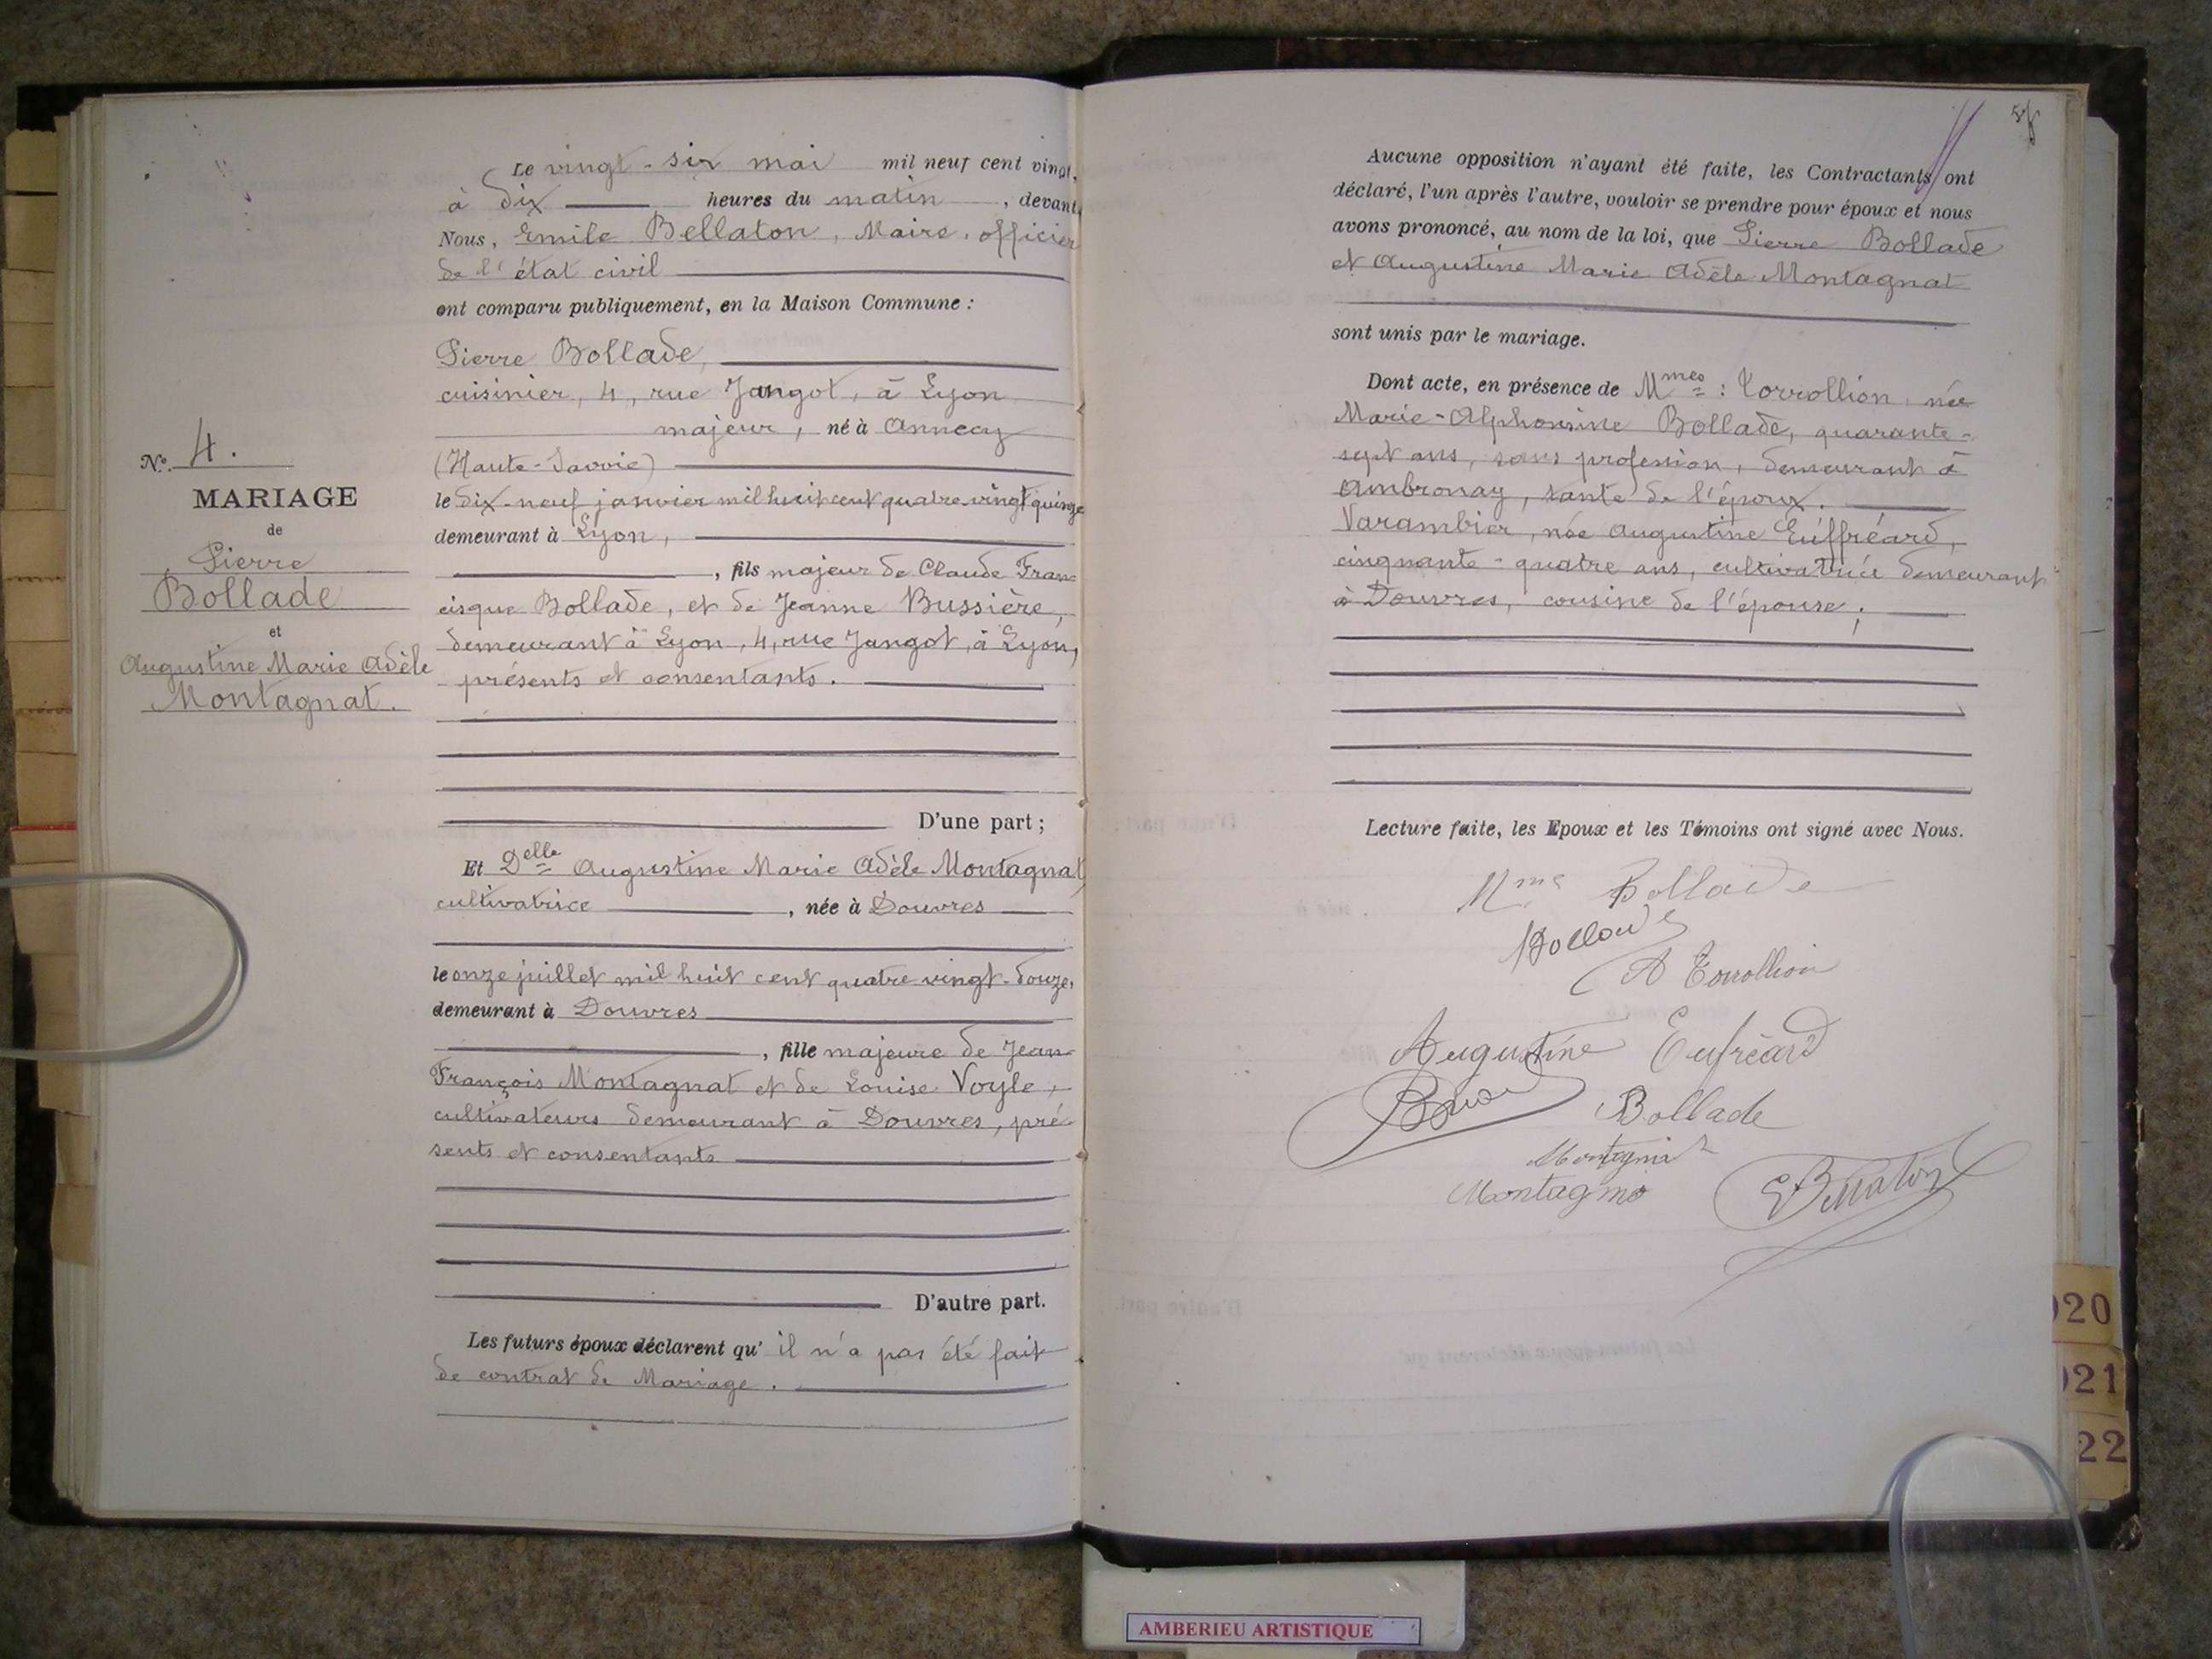 Le vingt-six mai mil neuf cent vingt,
à dix heures du matin, devant
Nous, Emile Bellaton, Maire, officier
de l'état civil
ont comparu publiquement, en la Maison Commune :
Pierre Bollade,
cuisinier, 4, rue Jangot, à Lyon
majeur, né à Annecy
(Haute-Savoie)
le dix-neuf janvier mil huit cent quatre-vingt quinze
demeurant à Lyon,
, fils majeur de Claude Fran-
cisque Bollade, et de Jeanne Bussière,
demeurant à Lyon, 4, rue Jangot, à Lyon,
présents et consentants.
D'une part ;
Et Delle Augustine Marie Adèle Montagnat,
cultivatrice, née à Douvres
le onze juillet mil huit cent quatre vingt-douze,
demeurant à Douvres
, fille majeure de Jean
François Montagnat et de Louise Voyle,
cultivateurs demeurant à Douvres, pré-
sents et consentants
D'autre part.
Les futurs époux déclarent qu'il n'a pas été fait
de contrat de Mariage.
No. 4.
MARIAGE
de
Pierre
Bollade
et
Augustine Marie Adèle
Montagnat.
Aucune opposition n'ayant été faite, les Contractants ont
déclaré, l'un après l'autre, vouloir se prendre pour époux et nous
avons prononcé, au nom de la loi, que Pierre Bollade
et Augustine Marie Adèle Montagnat
sont unis par le mariage.
Dont acte, en présence de Mmes : Torrollion, née
Marie-Alphonsine Bollade, quarante-
sept ans, sans profession, demeurant à
Ambronay, tante de l'époux.
Varambier, née Augustine Euffréard,
cinquante-quatre ans, cultivatrice demeurant
à Douvres, cousine de l'épouse ;
Lecture faite, les Epoux et les Témoins ont signé avec Nous.
Mme Bollade
Bollade
A Torrollion
Augustine Eufréard
Bollade
Montagnat
E Bellaton
020
021
22
AMBERIEU ARTISTIQUE